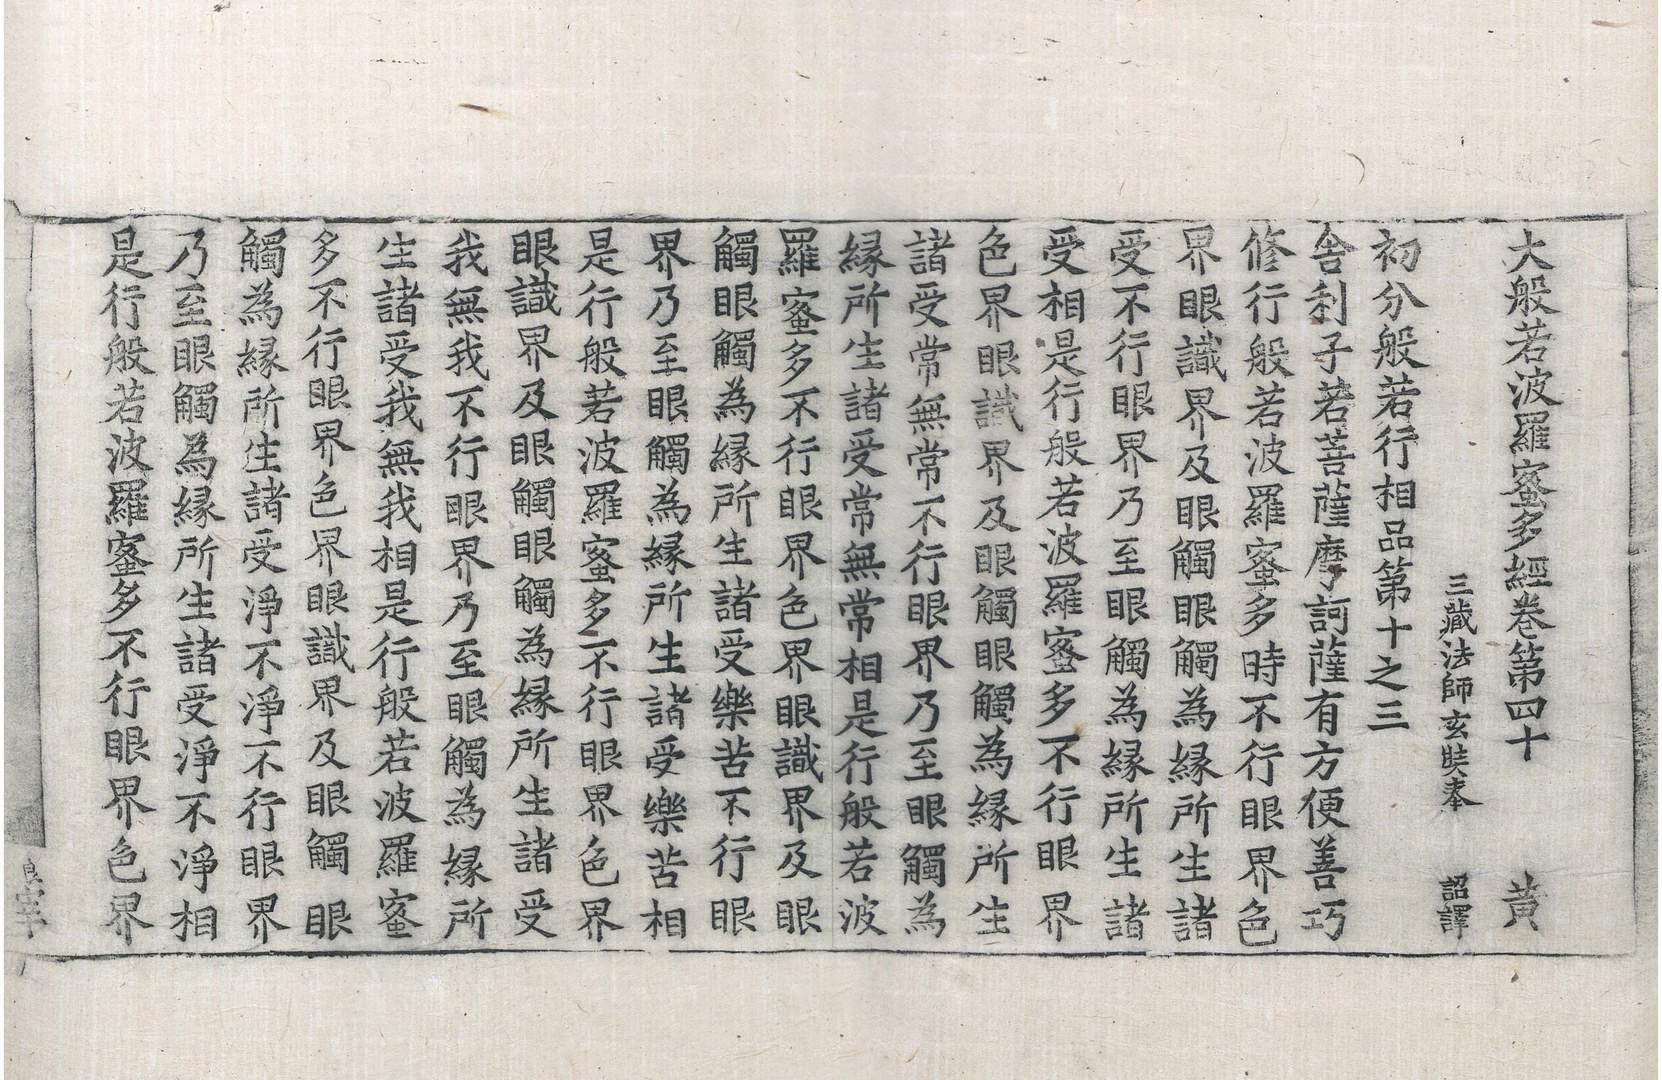 大般若波羅蜜多經卷第四十　黃
三藏法師玄奘奉　詔譯
初分般若行相品第十之三
舍利子若菩薩摩訶薩有方便善巧
修行般若波羅蜜多時不行眼界色
界眼識界及眼觸眼觸為緣所生諸
受不行眼界乃至眼觸為緣所生諸
受相是行般若波羅蜜多不行眼界
色界眼識界及眼觸眼觸為緣所生
諸受常無常不行眼界乃至眼觸為
緣所生諸受常無常相是行般若波
羅蜜多不行眼界色界眼識界及眼
觸眼觸為緣所生諸受樂苦不行眼
界乃至眼觸為緣所生諸受樂苦相
是行般若波羅蜜多不行眼界色界
眼識界及眼觸眼觸為緣所生諸受
我無我不行眼界乃至眼觸為緣所
生諸受我無我相是行般若波羅蜜
多不行眼界色界眼識界及眼觸眼
觸為緣所生諸受淨不淨不行眼界
乃至眼觸為緣所生諸受淨不淨相
是行般若波羅蜜多不行眼界色界